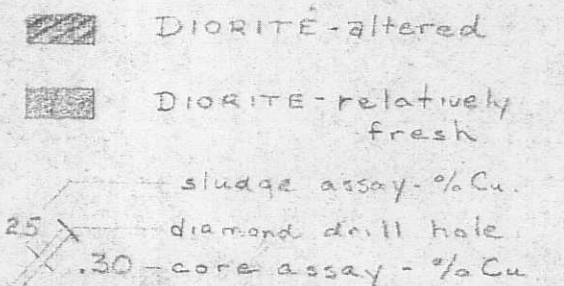 DIORITE-altered
DIORITE-relatively
fresh
sludge assay-%Cu.
25 diamond drill hole
.30-core assay-%Cu